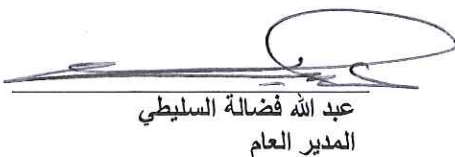 عبد الله فضالة السليطي
المدير العام